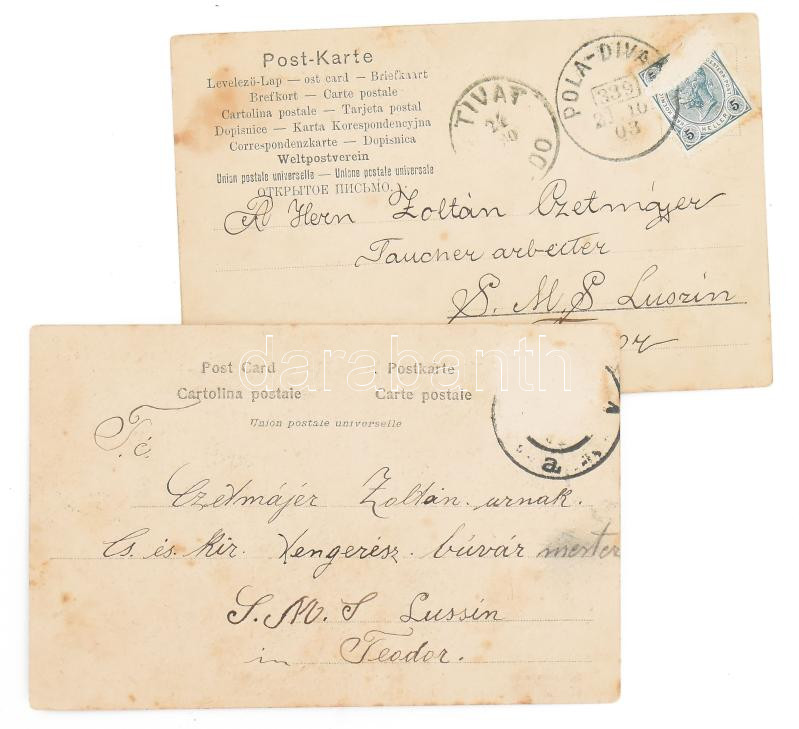 Post-Karte
Levelező-Lap — ost card — Briefkaart
Brefkort — Carte postale
Cartolina postale — Tarjeta postal
Dopisnice — Karta Korespondencyjna
Correspondenzkarte — Dopisnica
Weltpostverein
Union postale universelle — Unione postale universale
ОТКРЫТОЕ ПИСЬМО.
TIVAT
24
10
00
POLA-DIVA
339
10
03
5 HELLER 5
A Hern Zoltán Czetmájer
Taucher arbeiter
S. M. S Luszin
or
darabanth
Post Card
Postkarte
Cartolina postale
Carte postale
Union postale universelle
a
T. é.
Czetmájer Zoltán urnak.
Cs. és. kir. tengerész. búvár mester
S. M. S Lussin
in Teodor.